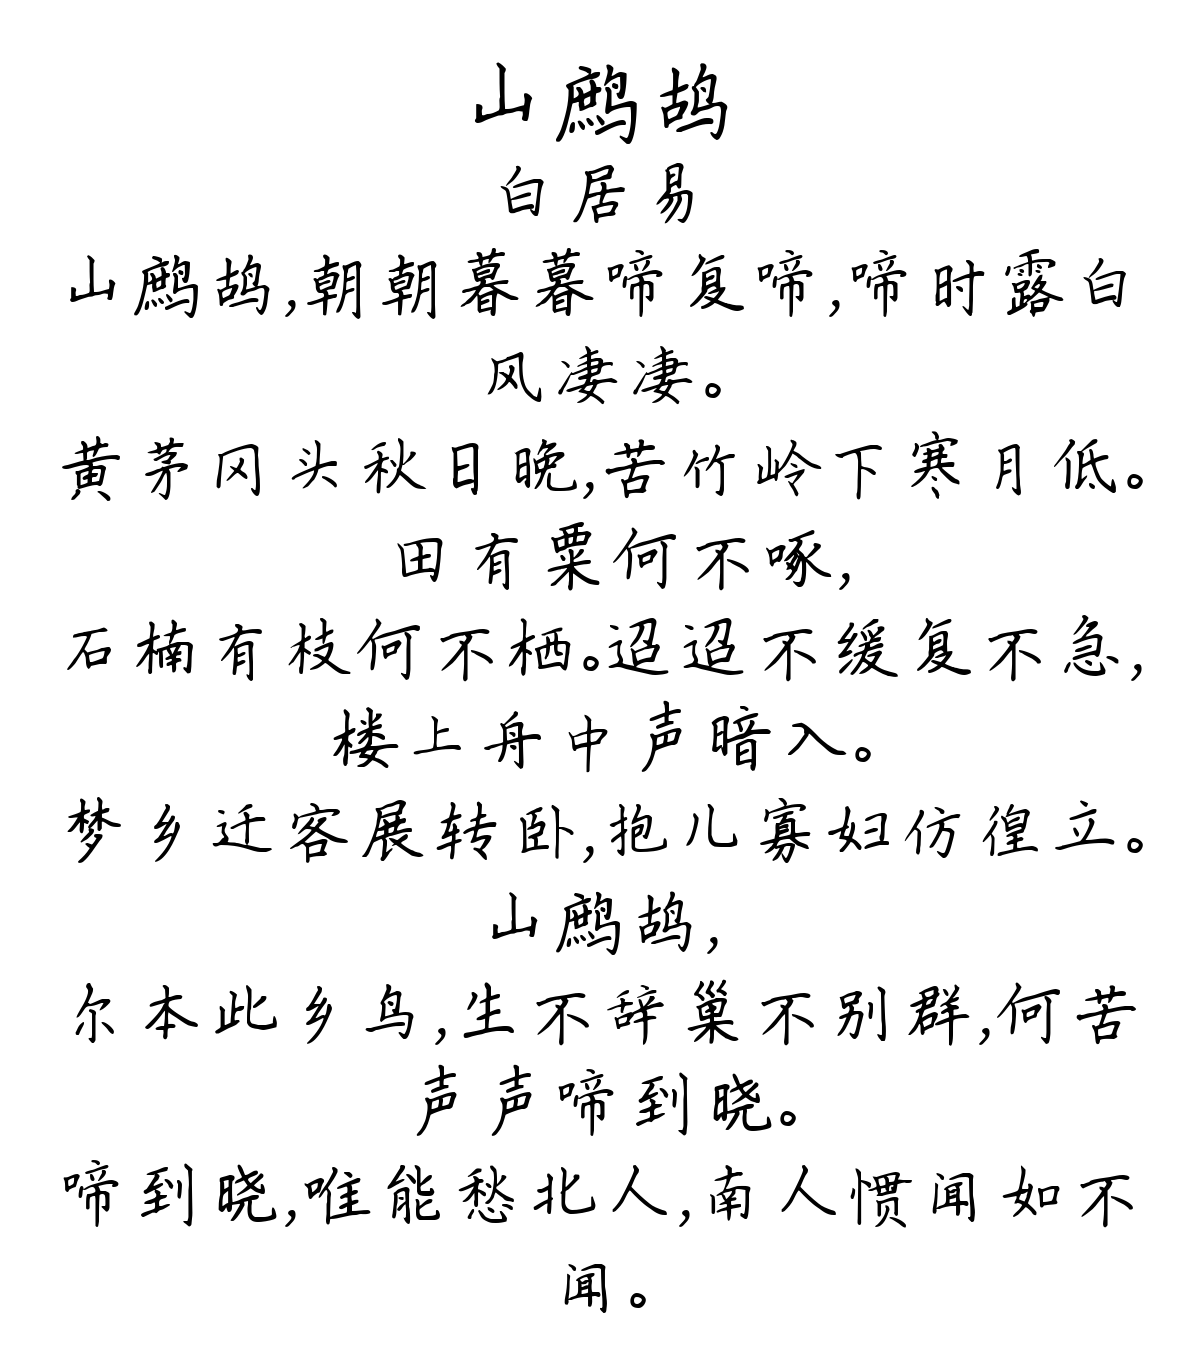 山鹧鸪
白居易
山鹧鸪,朝朝暮暮啼复啼,啼时露白
风凄凄。
黄茅冈头秋日晚,苦竹岭下寒月低。
田有粟何不啄,
石楠有枝何不栖。迢迢不缓复不急,
楼上舟中声暗入。
梦乡迁客展转卧,抱儿寡妇仿徨立。
山鹧鸪,
尔本此乡鸟,生不辞巢不别群,何苦
声声啼到晓。
啼到晓,唯能愁北人,南人惯闻如不
闻。